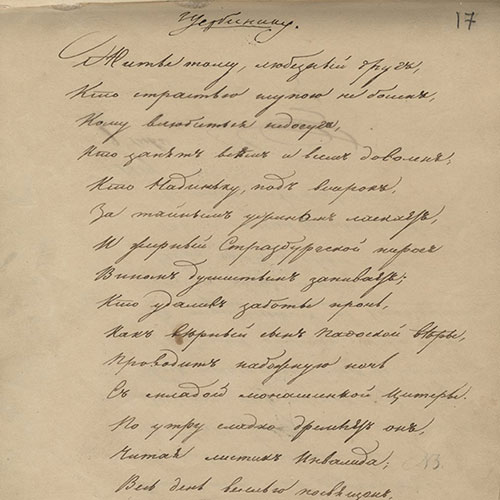 Щербинину.
17
Житье тому, любезный другъ,
Кто страстью глупою не боленъ,
Кому влюбиться недосугъ,
Кто занятъ всѣмъ и всѣмъ доволенъ;
Кто Надиньку, подъ вечерокъ,
За тайнымъ ужиномъ ласкаетъ,
И жирный Стразбургской пирогъ
Виномъ душистымъ запиваетъ;
Кто удаливъ заботы прочь,
Какъ вѣрный сынъ Пафоской вѣры,
Проводитъ набожную ночь
Съ младой монашинкой Цитеры.
По утру сладко дремлетъ онъ,
Читая листикъ Инвалида;
Весь день веселью посвященъ,